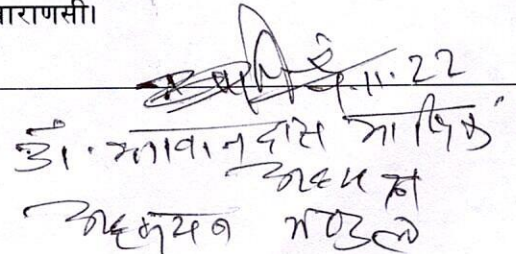 ाराणसी।
11.22
डॉ. भगवानदास
अध्यक्ष
अध्ययन मण्डल